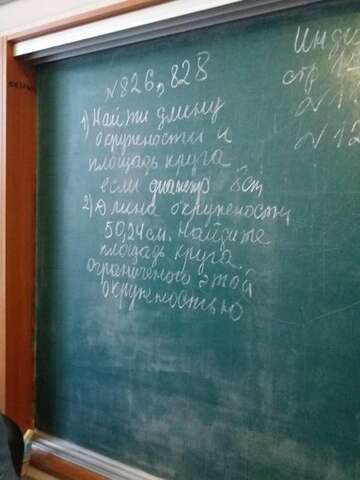 №826, 828
1) Найти длину
окружености и
площадь круга
если диаметр 8см
2) Длина окружености
50,24см. Найдите
площадь круга
ограниченого этой
окружностью
Инди
стр
№1
№12